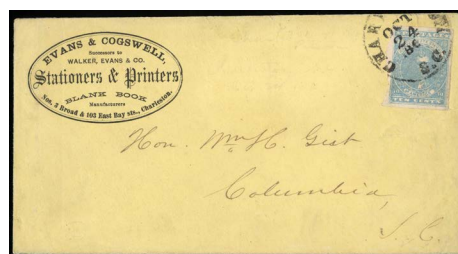 EVANS & COGSWELL,
Successors to
WALKER, EVANS & CO.
Stationers & Printers
BLANK BOOK
Manufacturers
Nos. 3 Broad & 103 East Bay sts., Charleston.
OCT
24
S.C.
TEN CENTS
Hon. Wm. H. Gist
Columbia,
S. C.